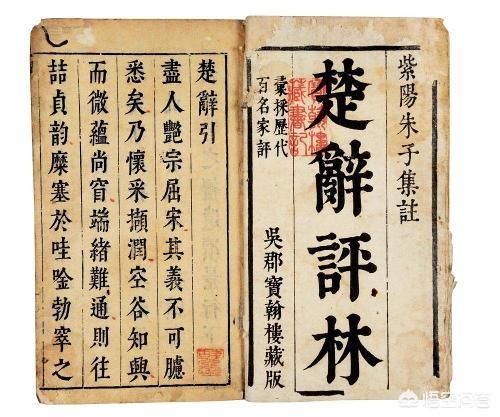 紫陽朱子集註
楚辭評林
彚採歷代
百名家評
吳郡寶翰樓藏版
楚辭引
盡人艷宗屈宋其義不可臆
悉矣乃懷采擷潤空谷知興
而微蘊尚窅端緒難通則往
喆貞韵糜塞於哇唫勃窣之
悟空问答